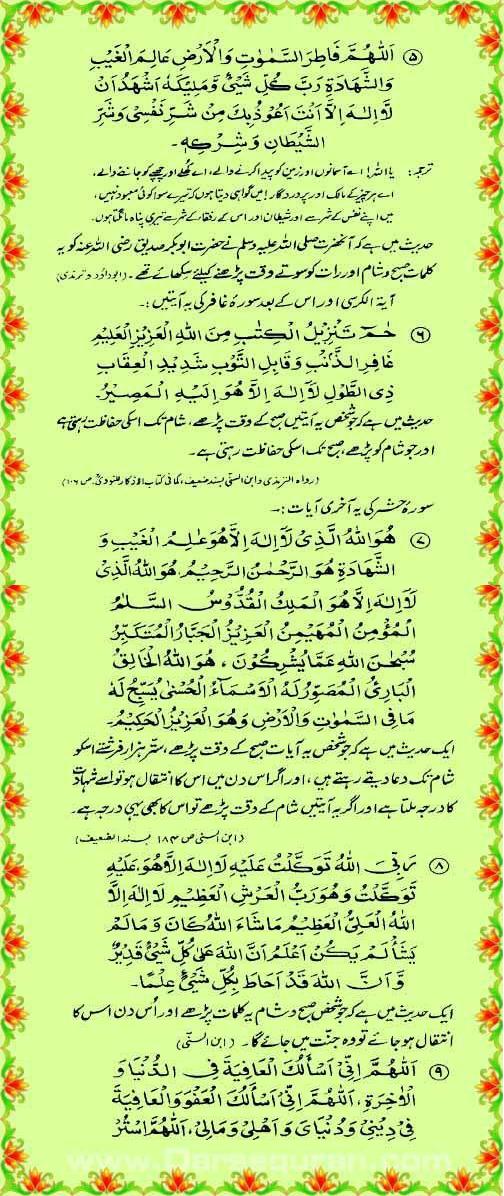 ۵ اَللّٰهُمَّ فَاطِرَ السَّمٰوٰتِ وَالْاَرْضِ عَالِمَ الْغَيْبِ
وَالشَّهَادَةِ رَبَّ كُلِّ شَيْئٍ وَّمَلِيْكَهٗ اَشْهَدُ اَنْ
لَّا اِلٰهَ اِلَّا اَنْتَ اَعُوْذُ بِكَ مِنْ شَرِّ نَفْسِيْ وَشَرِّ
الشَّيْطَانِ وَشِرْكِهٖ۔
ترجمہ: یا اللہ! اے آسمانوں اور زمین کو پیدا کرنے والے، اے کھلے اور چھپے کو جاننے والے،
اے ہر چیز کے مالک اور پروردگار! میں گواہی دیتا ہوں کہ تیرے سوا کوئی معبود نہیں،
میں اپنے نفس کے شر سے اور شیطان اور اس کے رفقاء کے شر سے تیری پناہ مانگتا ہوں۔
حدیث میں ہے کہ آنحضرت صلی اللہ علیہ وسلم نے حضرت ابوبکر صدیق رضی اللہ عنہ کو یہ
کلمات صبح و شام اور رات کو سوتے وقت پڑھنے کیلئے سکھائے تھے۔ (ابوداؤد و ترمذی)
آیۃ الکرسی اور اس کے بعد سورۂ غافر کی یہ آیتیں:۔
۶ حٰمٓ تَنْزِيْلُ الْكِتٰبِ مِنَ اللهِ الْعَزِيْزِ الْعَلِيْمِ
غَافِرِ الذَّنْبِ وَقَابِلِ التَّوْبِ شَدِيْدِ الْعِقَابِ
ذِى الطَّوْلِ لَآ اِلٰهَ اِلَّا هُوَ اِلَيْهِ الْمَصِيْرُ۔
حدیث میں ہے کہ جو شخص یہ آیتیں صبح کے وقت پڑھے، شام تک اسکی حفاظت رہتی ہے
اور جو شام کو پڑھے، صبح تک اسکی حفاظت رہتی ہے۔
(رواہ الترمذی و ابن السنی بسند ضعیف، کما فی کتاب الاذکار للنووی ص ۱۰۶)
سورۂ حشر کی یہ آخری آیات:۔
۷ هُوَ اللهُ الَّذِىْ لَآ اِلٰهَ اِلَّا هُوَ عٰلِمُ الْغَيْبِ وَ
الشَّهَادَةِ هُوَ الرَّحْمٰنُ الرَّحِيْمُ، هُوَ اللهُ الَّذِىْ
لَآ اِلٰهَ اِلَّا هُوَ الْمَلِكُ الْقُدُّوْسُ السَّلٰمُ
الْمُؤْمِنُ الْمُهَيْمِنُ الْعَزِيْزُ الْجَبَّارُ الْمُتَكَبِّرُ
سُبْحٰنَ اللهِ عَمَّا يُشْرِكُوْنَ، هُوَ اللهُ الْخَالِقُ
الْبَارِئُ الْمُصَوِّرُ لَهُ الْاَسْمَآءُ الْحُسْنٰى يُسَبِّحُ لَهٗ
مَا فِى السَّمٰوٰتِ وَالْاَرْضِ وَهُوَ الْعَزِيْزُ الْحَكِيْمُ۔
ایک حدیث میں ہے کہ جو شخص یہ آیات صبح کے وقت پڑھے، ستر ہزار فرشتے اسکو
شام تک دعا دیتے رہتے ہیں، اور اگر اس دن میں اس کا انتقال ہو تو اسے شہادت
کا درجہ ملتا ہے اور اگر یہ آیتیں شام کے وقت پڑھے تو اس کا بھی یہی درجہ ہے۔
(ابن السنی ص ۱۸۴ بسند الضعیف)
۸ رَبِّىَ اللهُ تَوَكَّلْتُ عَلَيْهِ لَآ اِلٰهَ اِلَّا هُوَ، عَلَيْهِ
تَوَكَّلْتُ وَهُوَ رَبُّ الْعَرْشِ الْعَظِيْمِ لَآ اِلٰهَ اِلَّا
اللهُ الْعَلِىُّ الْعَظِيْمُ مَاشَآءَ اللهُ كَانَ وَمَالَمْ
يَشَأْ لَمْ يَكُنْ اَعْلَمُ اَنَّ اللهَ عَلٰى كُلِّ شَيْئٍ قَدِيْرٌ
وَّاَنَّ اللهَ قَدْ اَحَاطَ بِكُلِّ شَيْئٍ عِلْمًا۔
ایک حدیث میں ہے کہ جو شخص صبح و شام یہ کلمات پڑھے اور اُس دن اس کا
انتقال ہو جائے تو وہ جنت میں جائے گا۔ (ابن السنی)
۹ اَللّٰهُمَّ اِنِّىْ اَسْأَلُكَ الْعَافِيَةَ فِى الدُّنْيَا وَ
الْاٰخِرَةِ، اَللّٰهُمَّ اِنِّىْ اَسْأَلُكَ الْعَفْوَ وَالْعَافِيَةَ
فِىْ دِيْنِىْ وَدُنْيَاىَ وَاَهْلِىْ وَمَالِىْ، اَللّٰهُمَّ اسْتُرْ
www.Darsequran.com